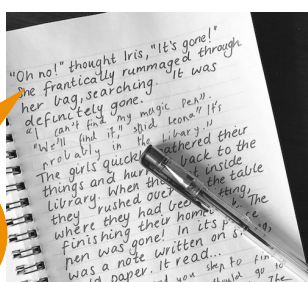 "Oh no!" thought Iris, "It's gone!"
She frantically rummaged through
her bag, searching. It was
definitely gone.
"I can't find my magic pen".
"We'll find it" said Leona" It's
probably in the libary."
The girls quickly gathered their
things and hur back to the
library. When they inside
they rushed over the table
where they had been tting,
finishing their home The
pen was gone! In it's p e
was a note written on s
old paper. It read...
you step to fin
should go to
The